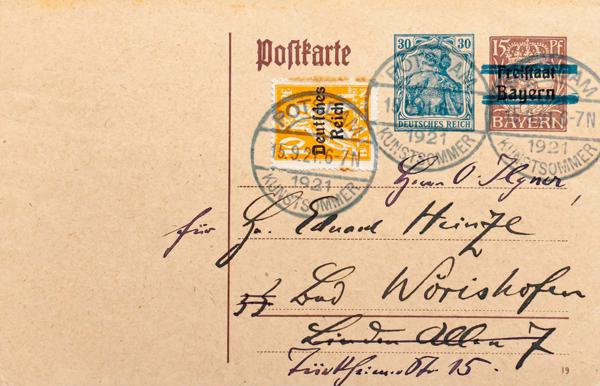 Postkarte
30 30
DEUTSCHES REICH
15 Pf
Freistaat
Bayern
BAYERN
Deutsches
Reich
POTSDAM
15.9.21.6-7N
1921
KUNSTSOMMER
POTSDAM
1921
KUNSTSOMMER
POTSDAM
6-7N
1921
KUNSTSOMMER
Herrn O.
für Hn. Eduard Heinze
Bad Wörishofen
Linden Allee 7
Türkheimer Str 15.
19